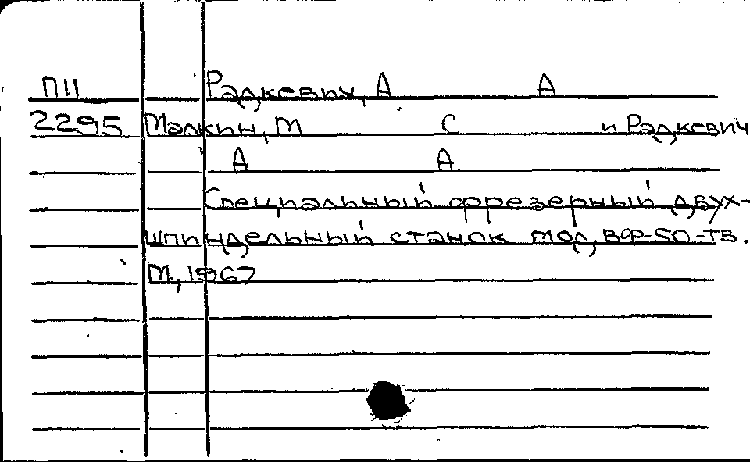 П11 Радкевич, А А
2295 Малкин, М С и Радкевич
А А
Специальный фрезерный двух-
шпиндельный станок мод. ВФ-50-ТВ.
М., 1967